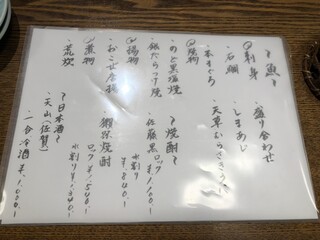 ～魚～
◎刺身
・盛り合わせ
・石鯛
・しまあじ
・本まぐろ
・天草むらさきうに
◎焼物
・のど黒塩焼
・銀だらっ子焼
◎揚物
・おこぜ唐揚
◎煮物
・荒炊
～焼酎～
・佐藤黒
ロック ¥1,100-
水割り ¥840-
・獺祭焼酎
ロック ¥1,540-
水割り ¥1,340-
～日本酒～
・天山(佐賀)
一合冷酒 ¥1,000-